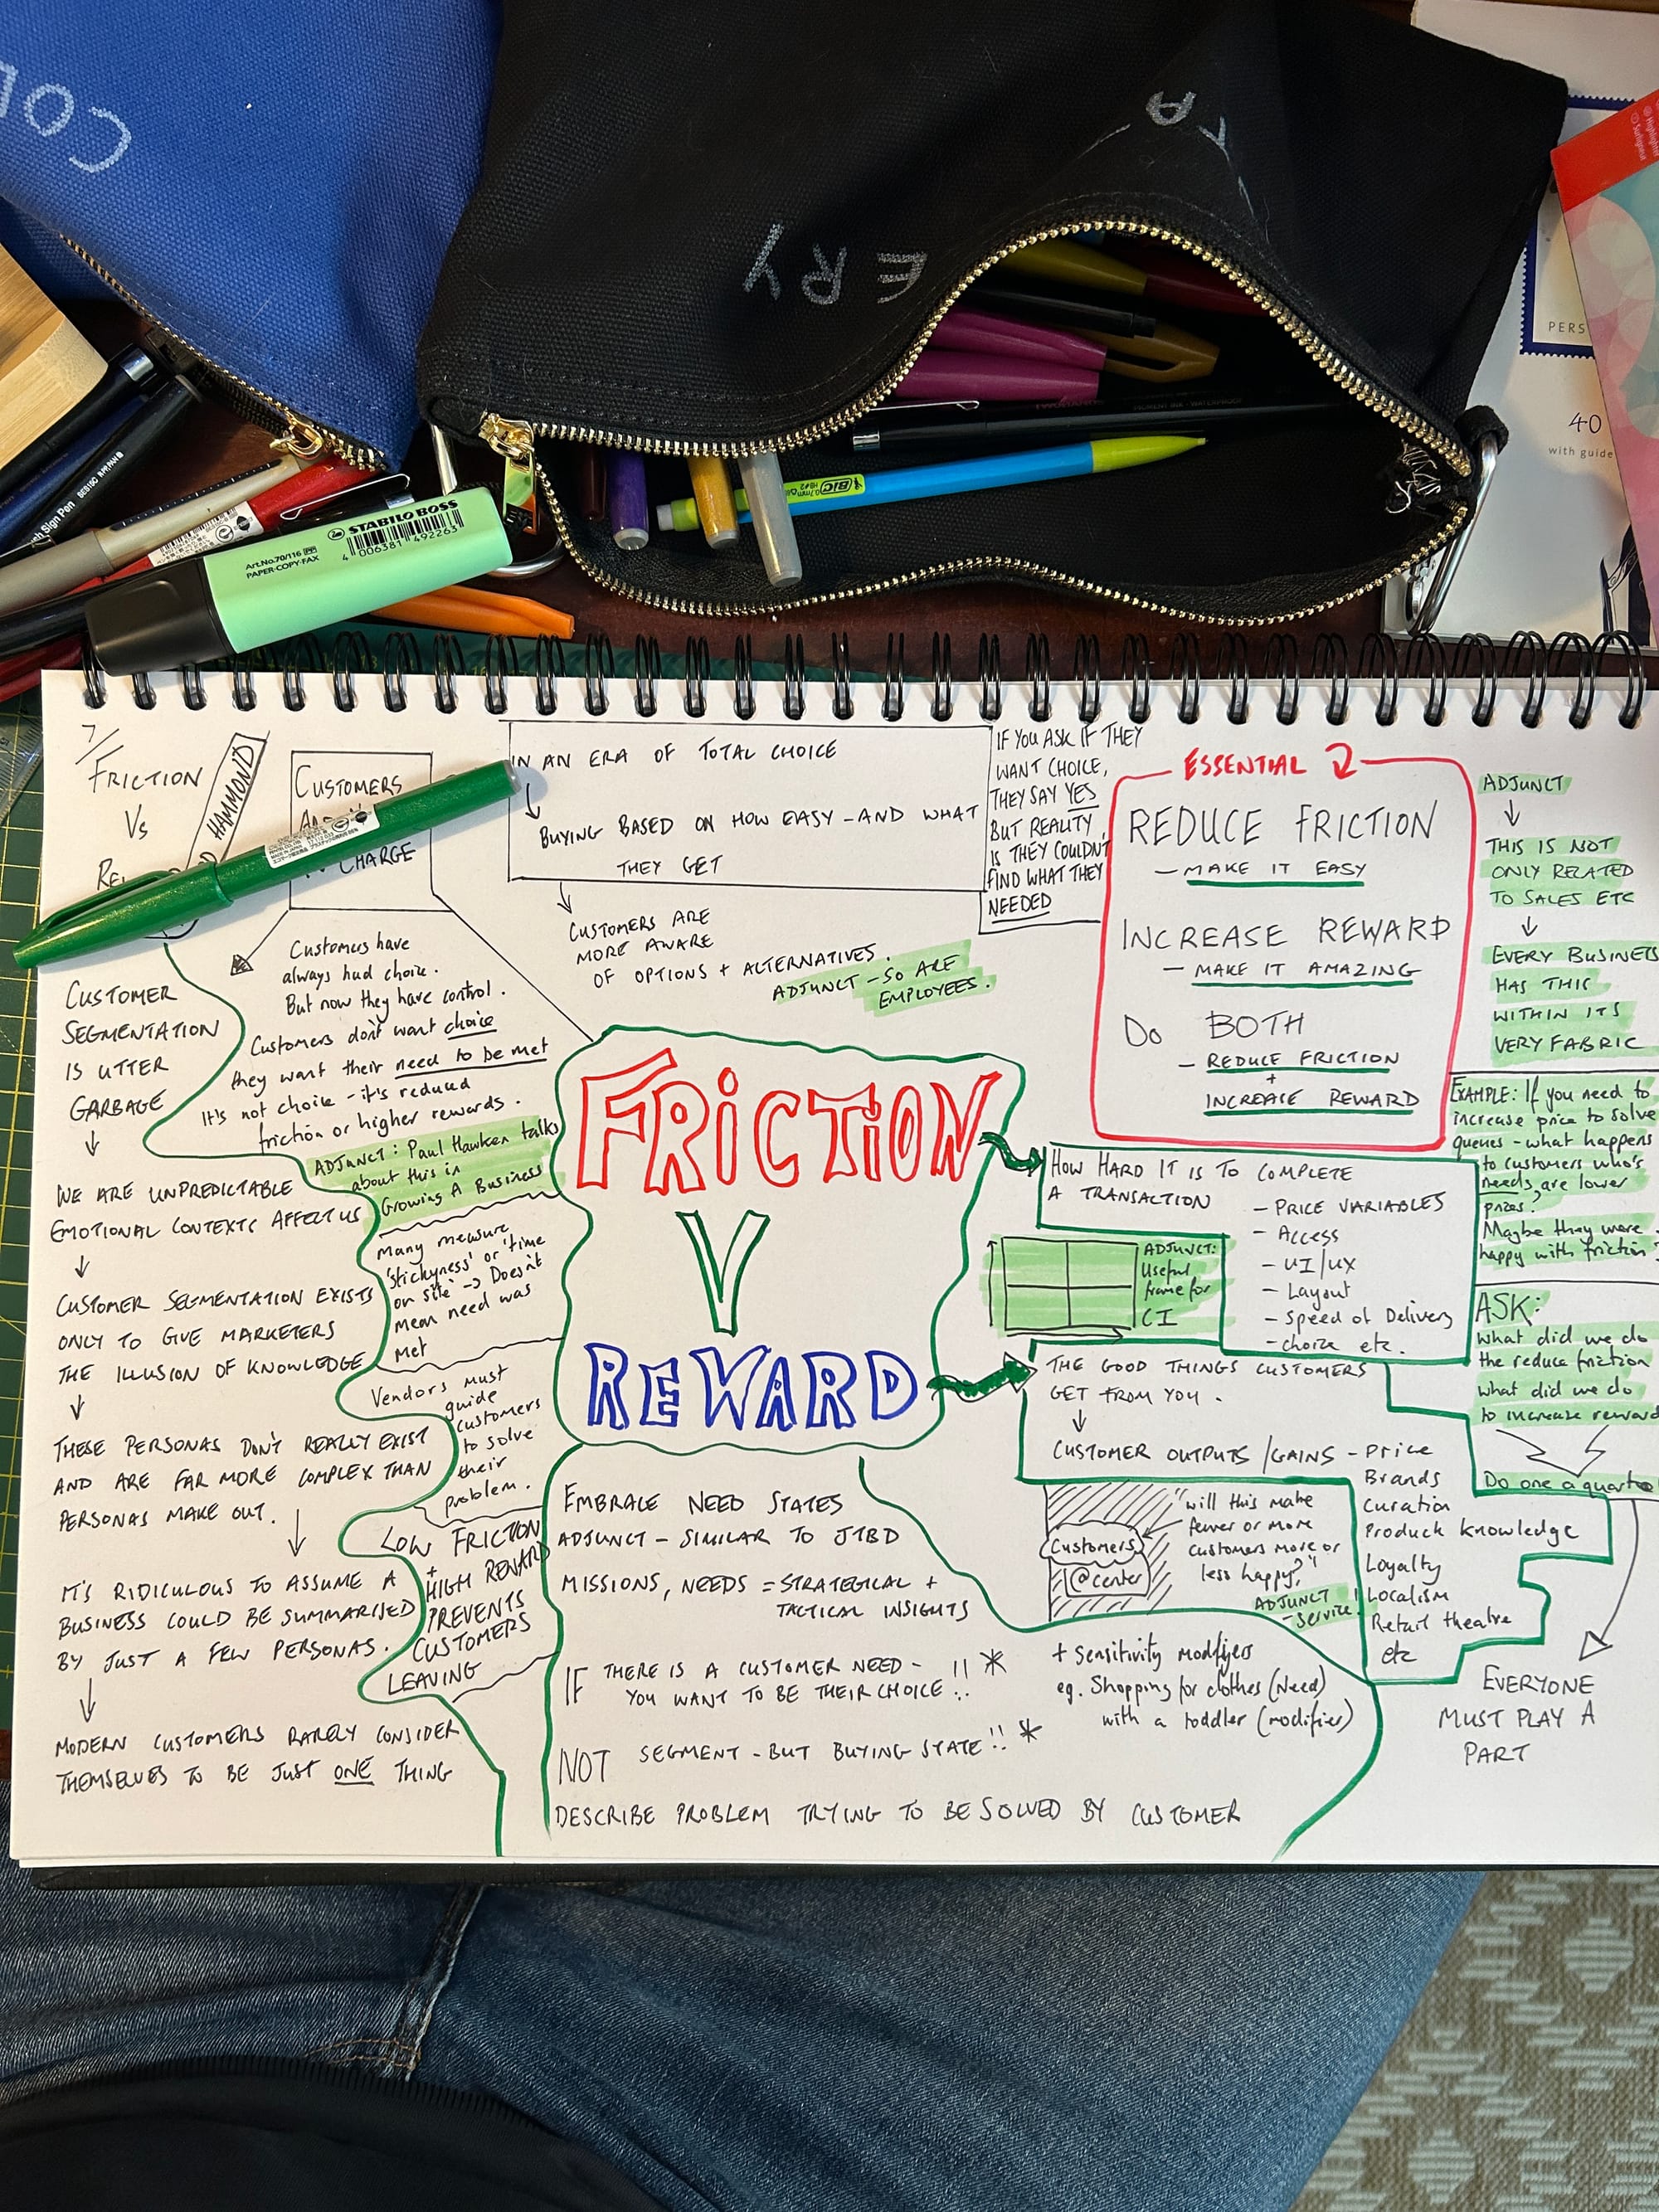 STABILO BOSS
Art.No.70/116
PAPER-COPY-FAX
4 006381 492263
BIC
0.7mm
HB #2
Sign Pen
ERY
TA
PERS
40
with guide
7/
FRICTION
VS
HAMMOND
CUSTOMERS
CHARGE
IN AN ERA OF TOTAL CHOICE
BUYING BASED ON HOW EASY - AND WHAT
THEY GET
CUSTOMERS ARE
MORE AWARE
OF OPTIONS + ALTERNATIVES.
ADJUNCT - SO ARE
EMPLOYEES.
IF YOU ASK IF THEY
WANT CHOICE,
THEY SAY YES
BUT REALITY,
IS THEY COULDN'T
FIND WHAT THEY
NEEDED
ESSENTIAL
REDUCE FRICTION
- MAKE IT EASY
INCREASE REWARD
- MAKE IT AMAZING
DO BOTH
- REDUCE FRICTION
+
INCREASE REWARD
ADJUNCT
THIS IS NOT
ONLY RELATED
TO SALES ETC
EVERY BUSINESS
HAS THIS
WITHIN ITS
VERY FABRIC
EXAMPLE: If you need to
increase price to solve
queues - what happens
to customers who's
needs are lower
prices?
Maybe they were
happy with friction?
ASK:
What did we do
the reduce friction
what did we do
to increase reward
Do one a quarter
EVERYONE
MUST PLAY A
PART
Customers have
always had choice.
But now they have control.
Customers don't want choice
they want their need to be met
It's not choice - it's reduced
friction or higher rewards.
ADJUNCT: Paul Hawken talks
about this in
Growing A Business
Many measure
'stickyness' or 'time
on site' → Doesn't
mean need was
met
Vendors must
guide
customers
to solve
their
problem.
LOW FRICTION
+
HIGH REWARD
PREVENTS
CUSTOMERS
LEAVING
CUSTOMER
SEGMENTATION
IS UTTER
GARBAGE
WE ARE UNPREDICTABLE
EMOTIONAL CONTEXTS AFFECT US
CUSTOMER SEGMENTATION EXISTS
ONLY TO GIVE MARKETERS
THE ILLUSION OF KNOWLEDGE
THESE PERSONAS DON'T REALLY EXIST
AND ARE FAR MORE COMPLEX THAN
PERSONAS MAKE OUT.
IT'S RIDICULOUS TO ASSUME A
BUSINESS COULD BE SUMMARISED
BY JUST A FEW PERSONAS.
MODERN CUSTOMERS RARELY CONSIDER
THEMSELVES TO BE JUST ONE THING
FRICTION
V
REWARD
HOW HARD IT IS TO COMPLETE
A TRANSACTION
- PRICE VARIABLES
- Access
- UI/UX
- Layout
- Speed of Delivery
- choice etc.
ADJUNCT:
Useful
frame for
CI
THE GOOD THINGS CUSTOMERS
GET FROM YOU.
CUSTOMER OUTPUTS / GAINS - Price
Brands
Curation
Product knowledge
Loyalty
Localism
Retail theatre
etc
Customers
@center
"will this make
fewer or more
customers more or
less happy?"
ADJUNCT
- service!
EMBRACE NEED STATES
ADJUNCT - SIMILAR TO JTBD
MISSIONS, NEEDS = STRATEGICAL +
TACTICAL INSIGHTS
IF THERE IS A CUSTOMER NEED -
YOU WANT TO BE THEIR CHOICE!! *
NOT SEGMENT - BUT BUYING STATE!! *
DESCRIBE PROBLEM TRYING TO BE SOLVED BY CUSTOMER
+ Sensitivity modifyers
eg. Shopping for clothes (Need)
with a toddler (modifier)